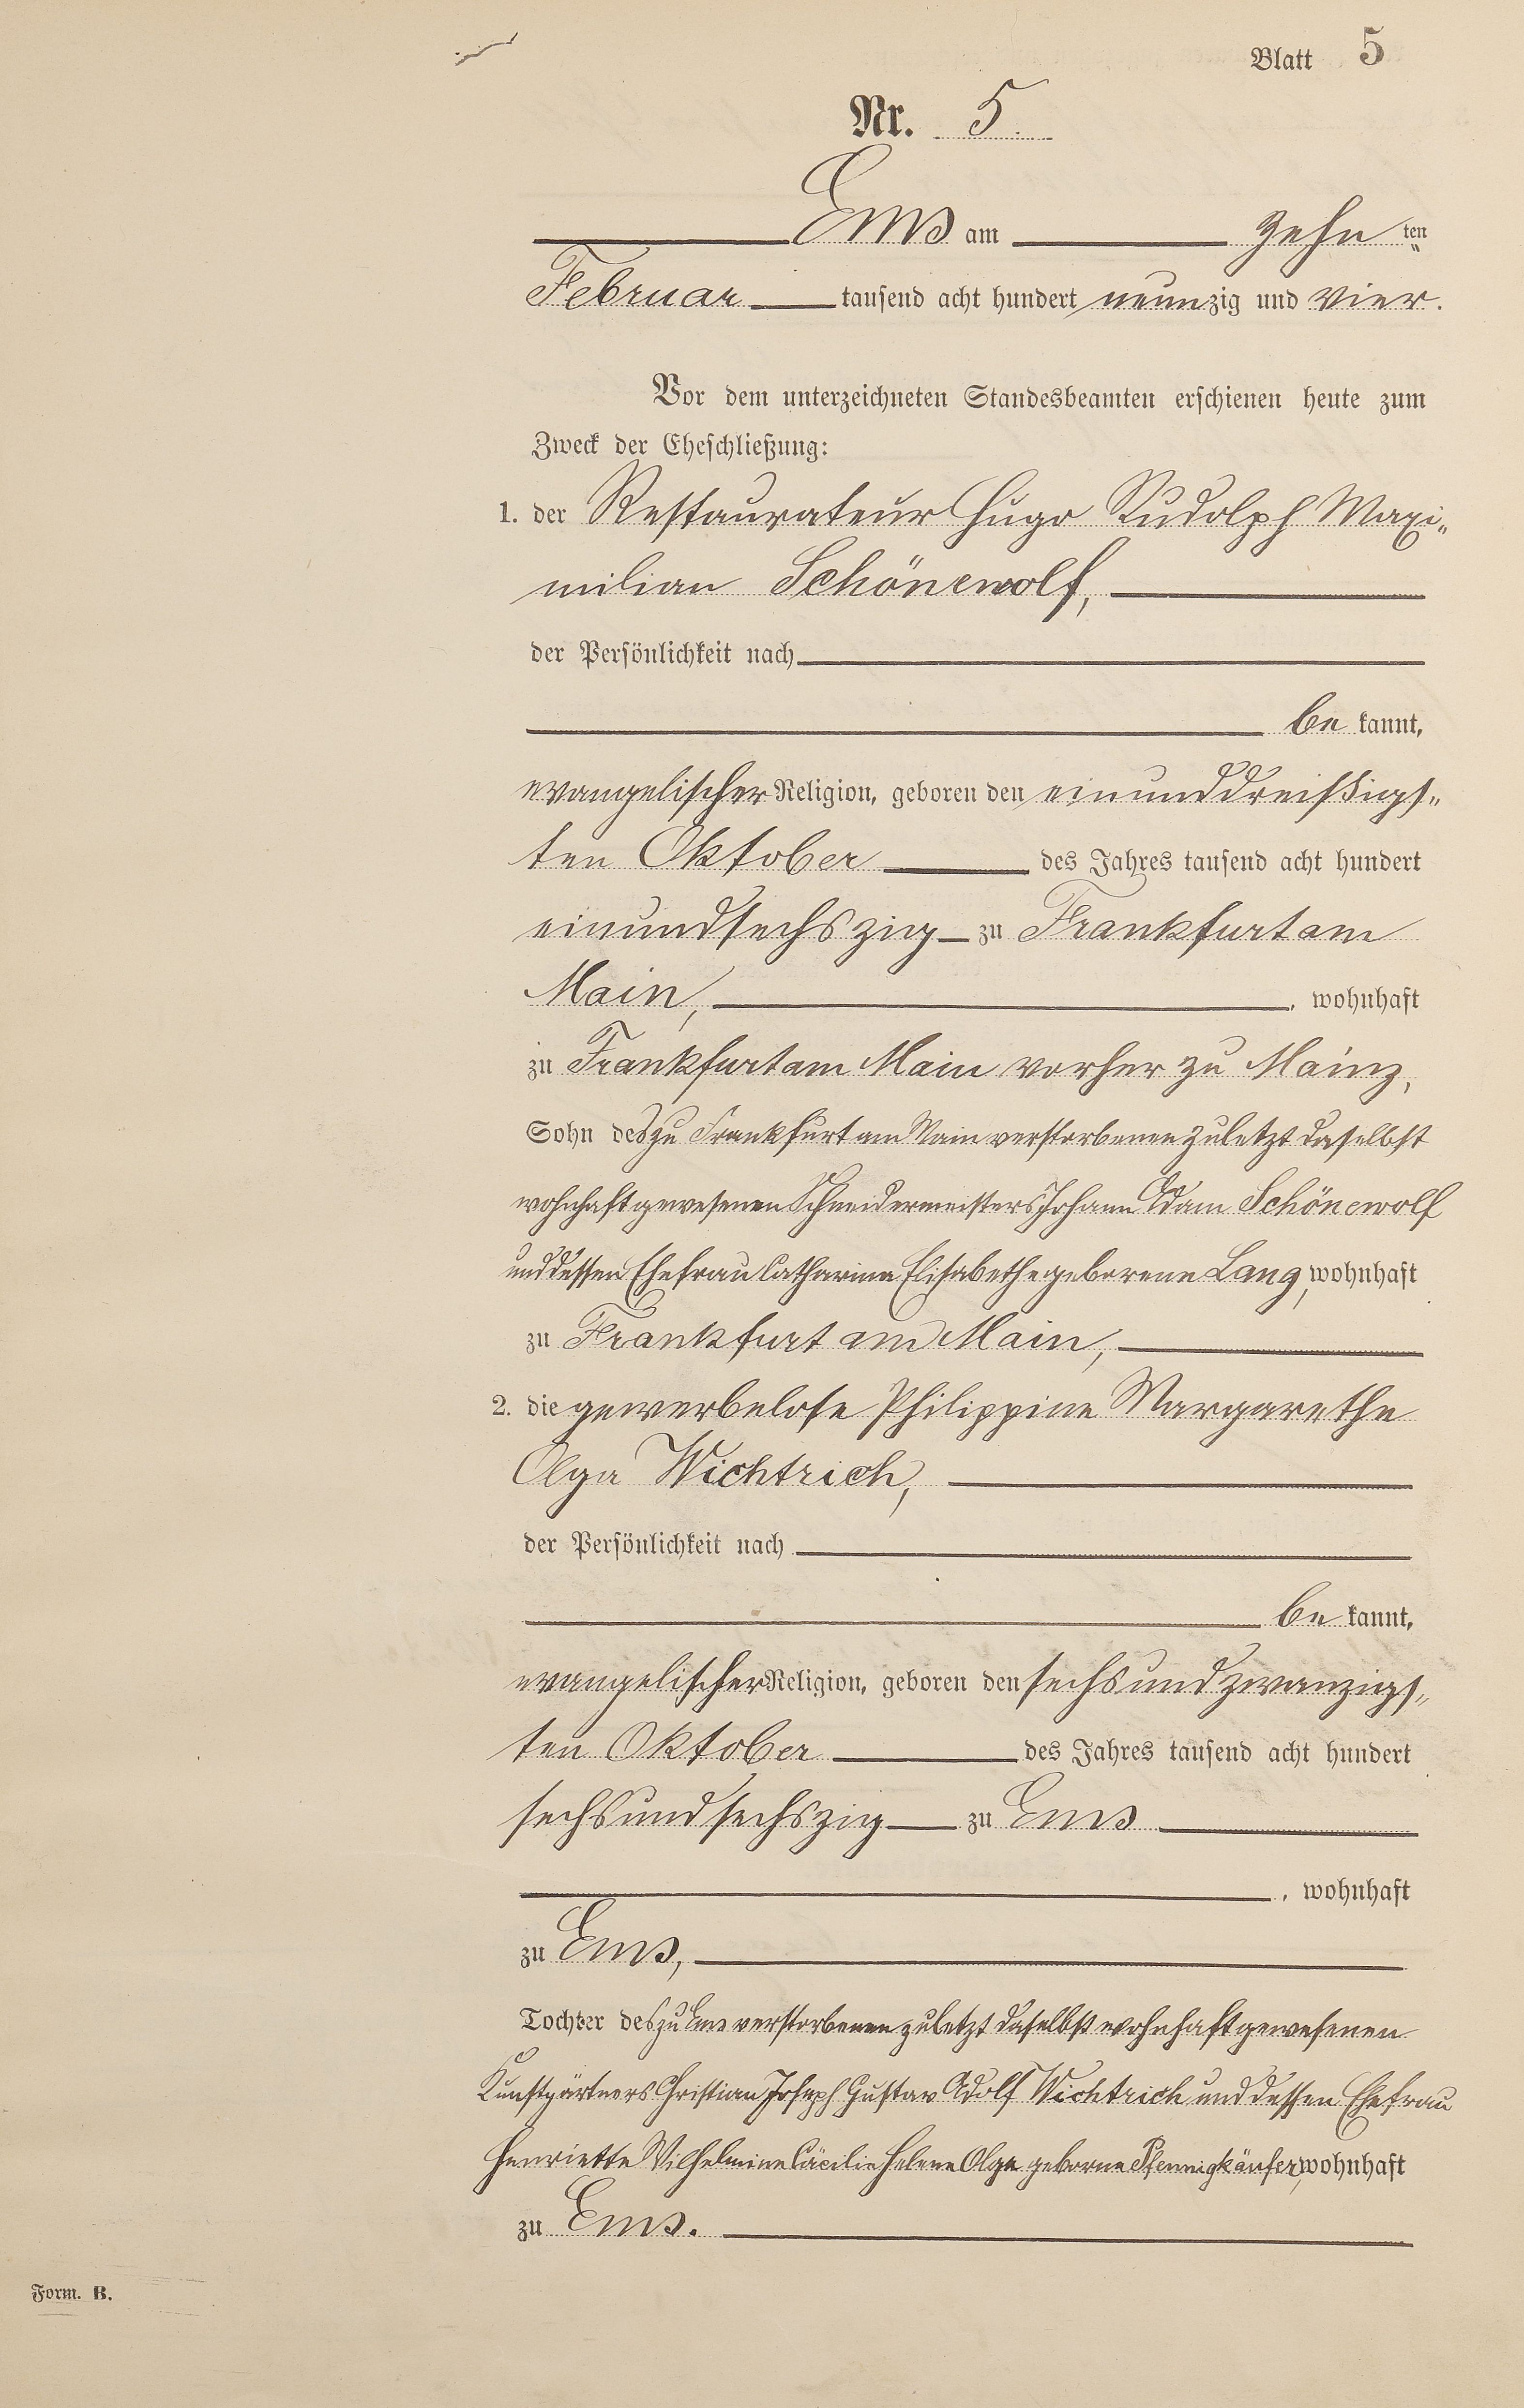 Blatt 5
Nr. 5.
Ems am zehn ten
Februar tausend acht hundert neunzig und vier.
Vor dem unterzeichneten Standesbeamten erschienen heute zum
Zweck der Eheschließung:
1. der Restaurateur Hugo Rudolph Maxi„
milian Schönewolf,
der Persönlichkeit nach
be kannt,
evangelischer Religion, geboren den einunddreißigs„
ten Oktober des Jahres tausend acht hundert
einundsechszig zu Frankfurt am
Main, , wohnhaft
zu Frankfurt am Main vorher zu Mainz,
Sohn des zu Frankfurt am Main verstorbenen zuletzt daselbst
wohnhaft gewesenen Schneidermeisters Johann Adam Schönewolf
und dessen Ehefrau Catharina Elisabethe geborene Lang, wohnhaft
zu Frankfurt am Main,
2. die gewerbelose Philippine Margarethe
Olga Wichtrich,
der Persönlichkeit nach
be kannt,
evangelischer Religion, geboren den sechsundzwanzigs„
ten Oktober des Jahres tausend acht hundert
sechsundsechszig zu Ems
, wohnhaft
zu Ems,
Tochter des zu Ems verstorbenen zuletzt daselbst wohnhaft gewesenen
Kunstgärtners Christian Joseph Gustav Adolf Wichtrich und dessen Ehefrau
Henriette Wilhelmine Cäcilie Helene Olga geborne Pfennigkäufer, wohnhaft
zu Ems.
Form. B.